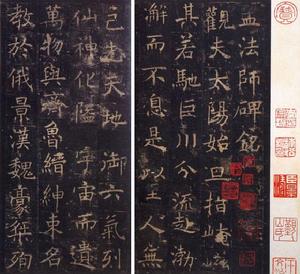 孟法師碑銘
觀夫太陽始旦指崦嵫
其若馳巨川分流赴渤
澥而不息是以至人無
己先天地御六氣列
仙神化隘宇宙而遺
萬物與齊魯縉紳束名
教於俄景漢魏豪傑殉